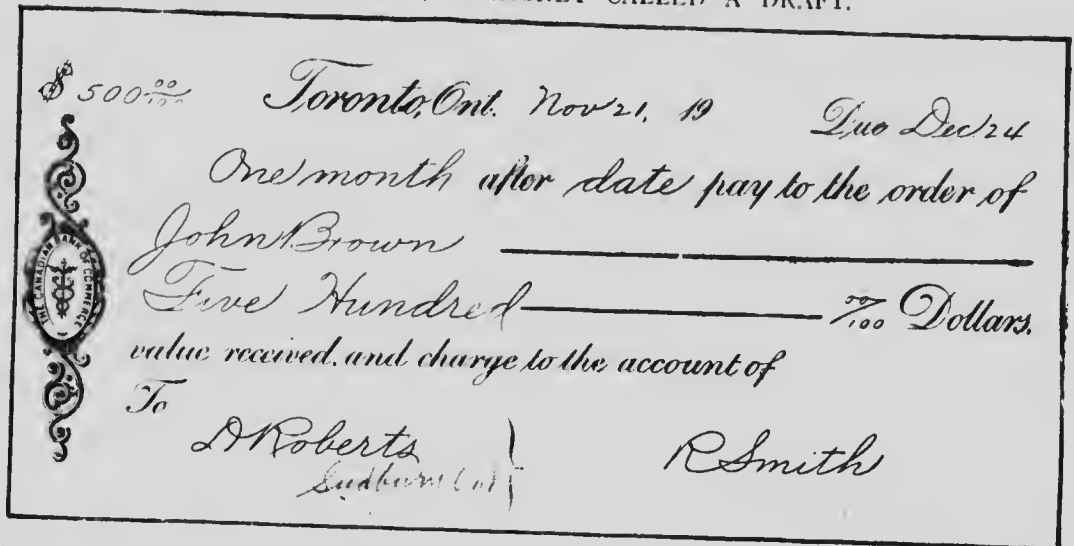 CALLED A DRAFT.
$ 500 00/100 Toronto, Ont. Nov 21, 19 Due Dec 24
One month after date pay to the order of
John Brown
Five Hundred 00/100 Dollars.
value received, and charge to the account of
To
D Roberts R Smith
Sudbury
THE CANADIAN BANK OF COMMERCE